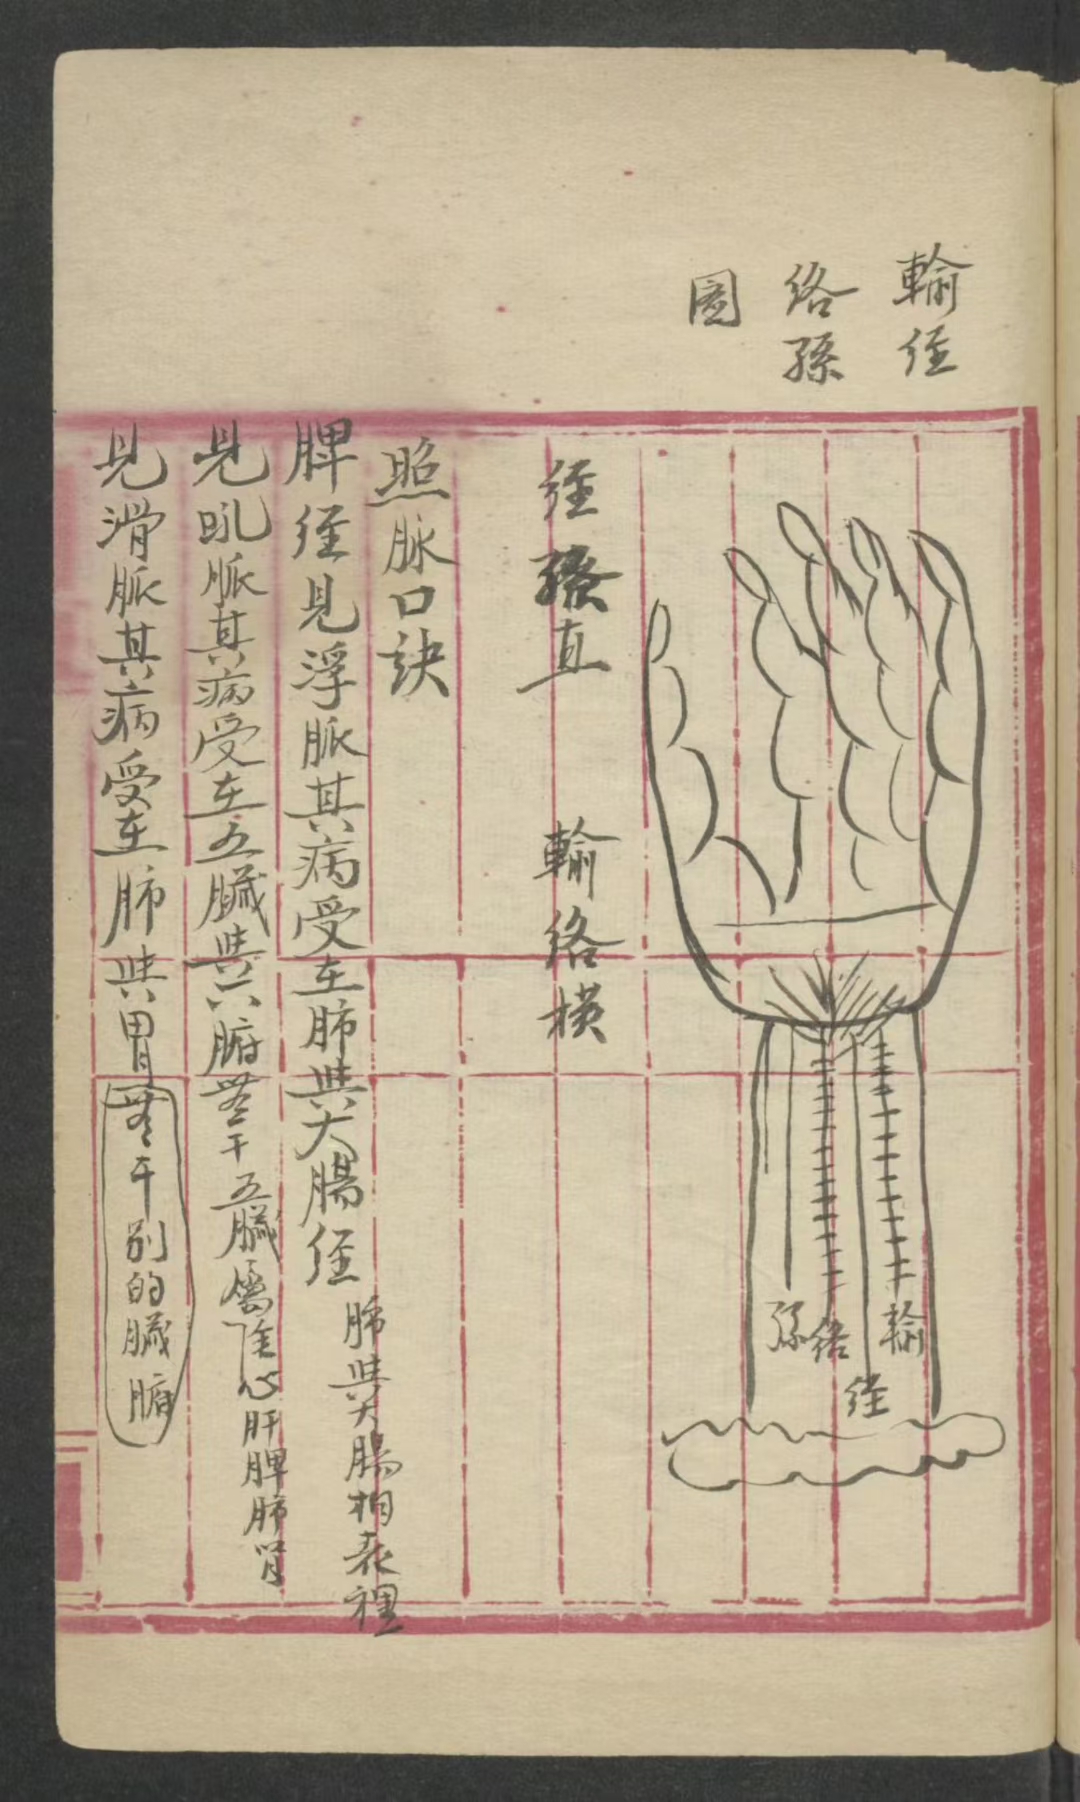 輸経
络孫
圖
輸
経
络
孫
経孫直
輸络横
照脉口訣
脾経見浮脈其病受在肺與大腸経
肺與大腸相表裡
見吼脈其病受在五臟與六腑無干五臟
心肝脾肺腎
見滑脈其病受在肺與胃無干別的臟腑